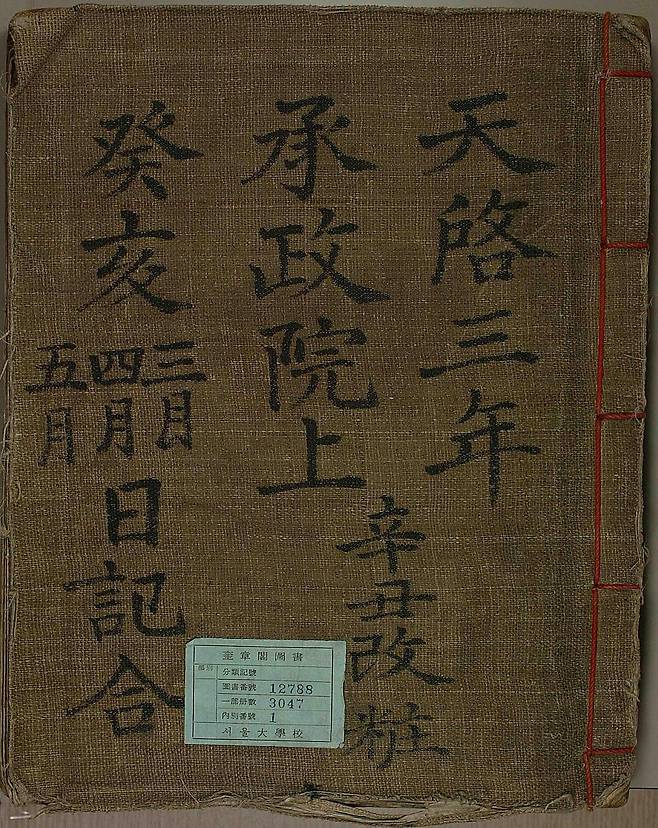 天啓三年
辛丑改粧
承政院上
癸亥
三月
四月
五月
日記合
奎章閣圖書
分類記號
圖書番號 12788
一部册數 3047
內別番號 1
서울大學校